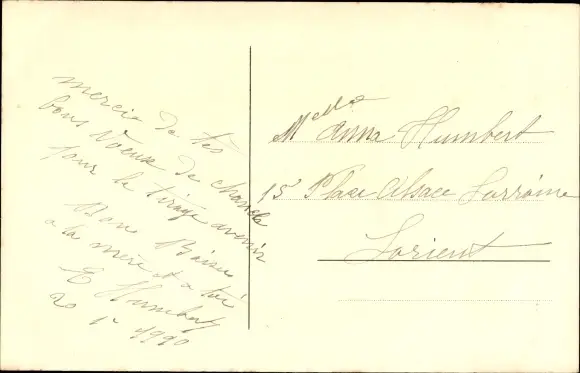 merci de tes
bons voeux de chance
pour le tirage avenir
Bons Baisers
a la mère et a toi
E Humbert
20 1
Melle Anna Humbert
15 Place Alsace Lorraine
Lorient